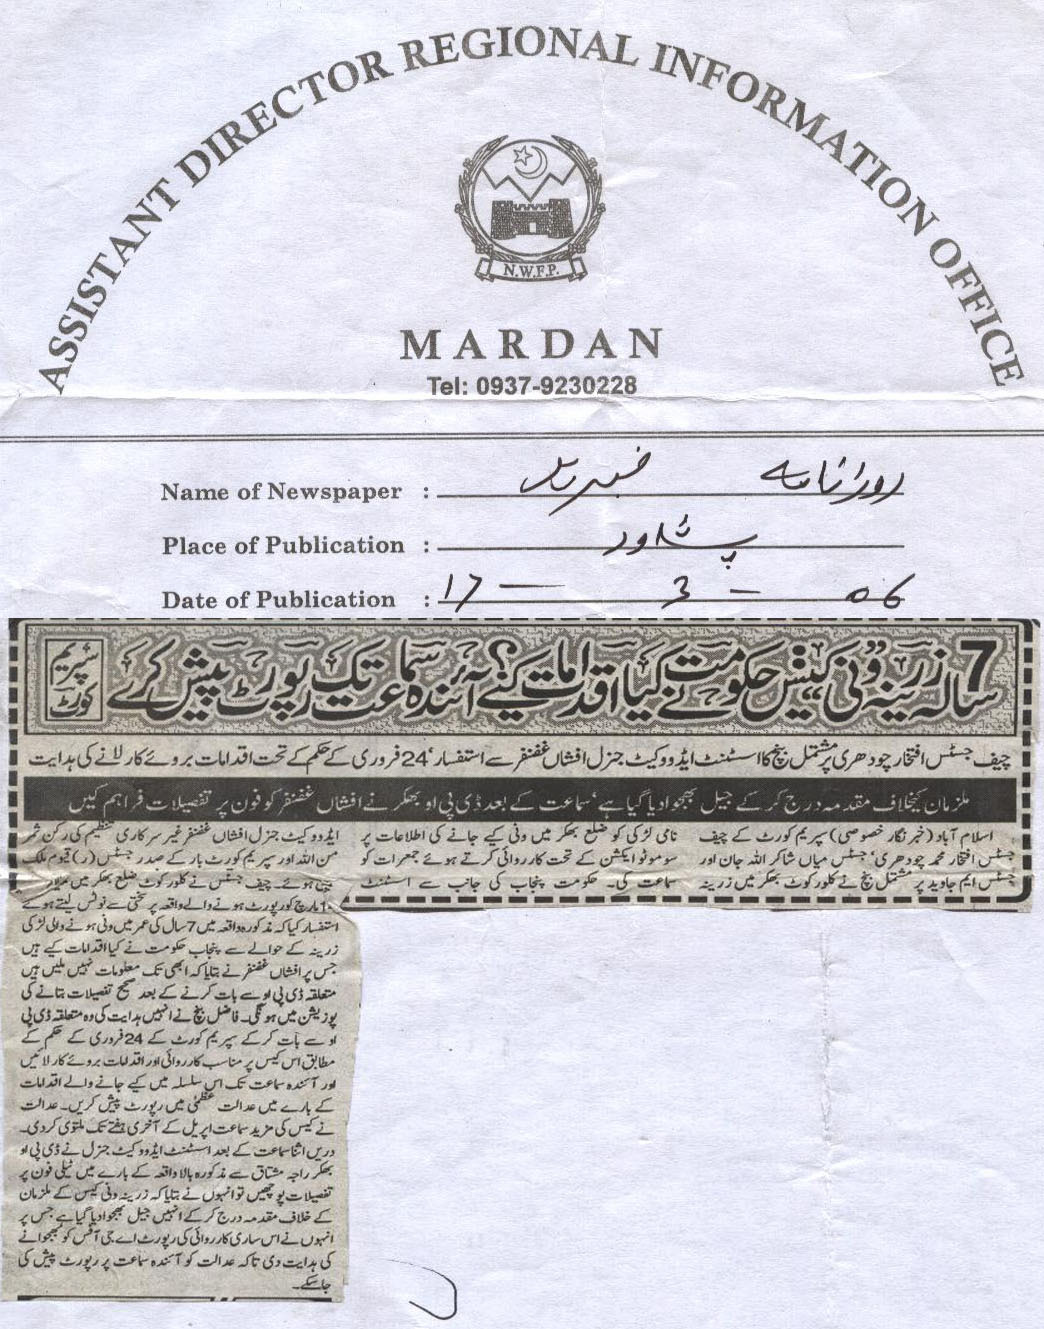 ASSISTANT DIRECTOR REGIONAL INFORMATION OFFICE
N.W.F.P.
MARDAN
Tel: 0937-9230228
Name of Newspaper : روزنامہ خبریں
Place of Publication : پشاور
Date of Publication : 17 — 3 — 06
7 سالہ زرینہ ونی کیس حکومت نے کیا اقدامات کئے؟ آئندہ سماعت تک رپورٹ پیش کرے
سپریم کورٹ
چیف جسٹس افتخار چودھری پر مشتمل بنچ کا اسسٹنٹ ایڈووکیٹ جنرل افشاں غضنفر سے استفسار، 24 فروری کے حکم کے تحت اقدامات بروئے کار لانے کی ہدایت
ملزمان کیخلاف مقدمہ درج کر کے جیل بھجوا دیا گیا ہے، سماعت کے بعد ڈی پی او بھکر نے افشاں غضنفر کو فون پر تفصیلات فراہم کیں
اسلام آباد (خبر نگار خصوصی) سپریم کورٹ کے چیف
جسٹس افتخار محمد چودھری، جسٹس میاں شاکر اللہ جان اور
جسٹس ایم جاوید پر مشتمل بنچ نے کلور کوٹ بھکر میں زرینہ
نامی لڑکی کو ضلع بھکر میں ونی کیے جانے کی اطلاعات پر
سوموٹو ایکشن کے تحت کارروائی کرتے ہوئے جمعرات کو
سماعت کی۔ حکومت پنجاب کی جانب سے اسسٹنٹ
ایڈووکیٹ جنرل افشاں غضنفر غیر سرکاری تنظیم کی رکن ثمر
من اللہ اور سپریم کورٹ بار کے صدر جسٹس (ر) قیوم ملک
پیش ہوئے۔ چیف جسٹس نے کلور کوٹ ضلع بھکر میں
مارچ کو رپورٹ ہونے والے واقعہ پر سختی سے نوٹس لیتے ہوئے
استفسار کیا کہ مذکورہ واقعہ میں 7 سال کی عمر میں ونی ہونے والی لڑکی
زرینہ کے حوالے سے پنجاب حکومت نے کیا اقدامات کیے ہیں
جس پر افشاں غضنفر نے بتایا کہ ابھی تک معلومات نہیں ملیں ہیں
متعلقہ ڈی پی او سے بات کرنے کے بعد صحیح تفصیلات بتانے کی
پوزیشن میں ہونگی۔ فاضل بنچ نے انہیں ہدایت کی وہ متعلقہ ڈی پی
او سے بات کر کے سپریم کورٹ کے 24 فروری کے حکم کے
مطابق اس کیس پر مناسب کارروائی اور اقدامات بروئے کار لائیں
اور آئندہ سماعت تک اس سلسلہ میں کیے جانے والے اقدامات
کے بارے میں عدالت عظمیٰ میں رپورٹ پیش کریں۔ عدالت
نے کیس کی مزید سماعت اپریل کے آخری ہفتے تک ملتوی کر دی۔
دریں اثنا سماعت کے بعد اسسٹنٹ ایڈووکیٹ جنرل نے ڈی پی او
بھکر راجہ مشتاق سے مذکورہ بالا واقعہ کے بارے میں ٹیلی فون پر
تفصیلات پوچھیں تو انہوں نے بتایا کہ زرینہ ونی کیس کے ملزمان
کے خلاف مقدمہ درج کر کے انہیں جیل بھجوا دیا گیا ہے جس پر
انہوں نے اس ساری کارروائی کی رپورٹ اے جی آفس کو بھجوانے
کی ہدایت دی تاکہ عدالت کو آئندہ سماعت پر رپورٹ پیش کی
جا سکے۔